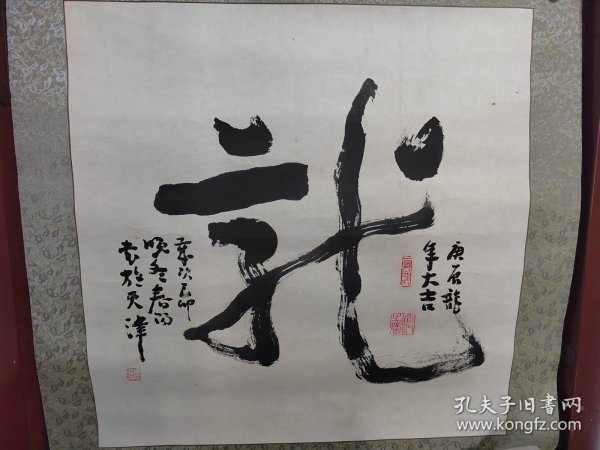 龍
庚辰龍
年大吉
歲次己卯
晚冬春雨
書於天津
孔夫子旧书网
www.kongfz.com